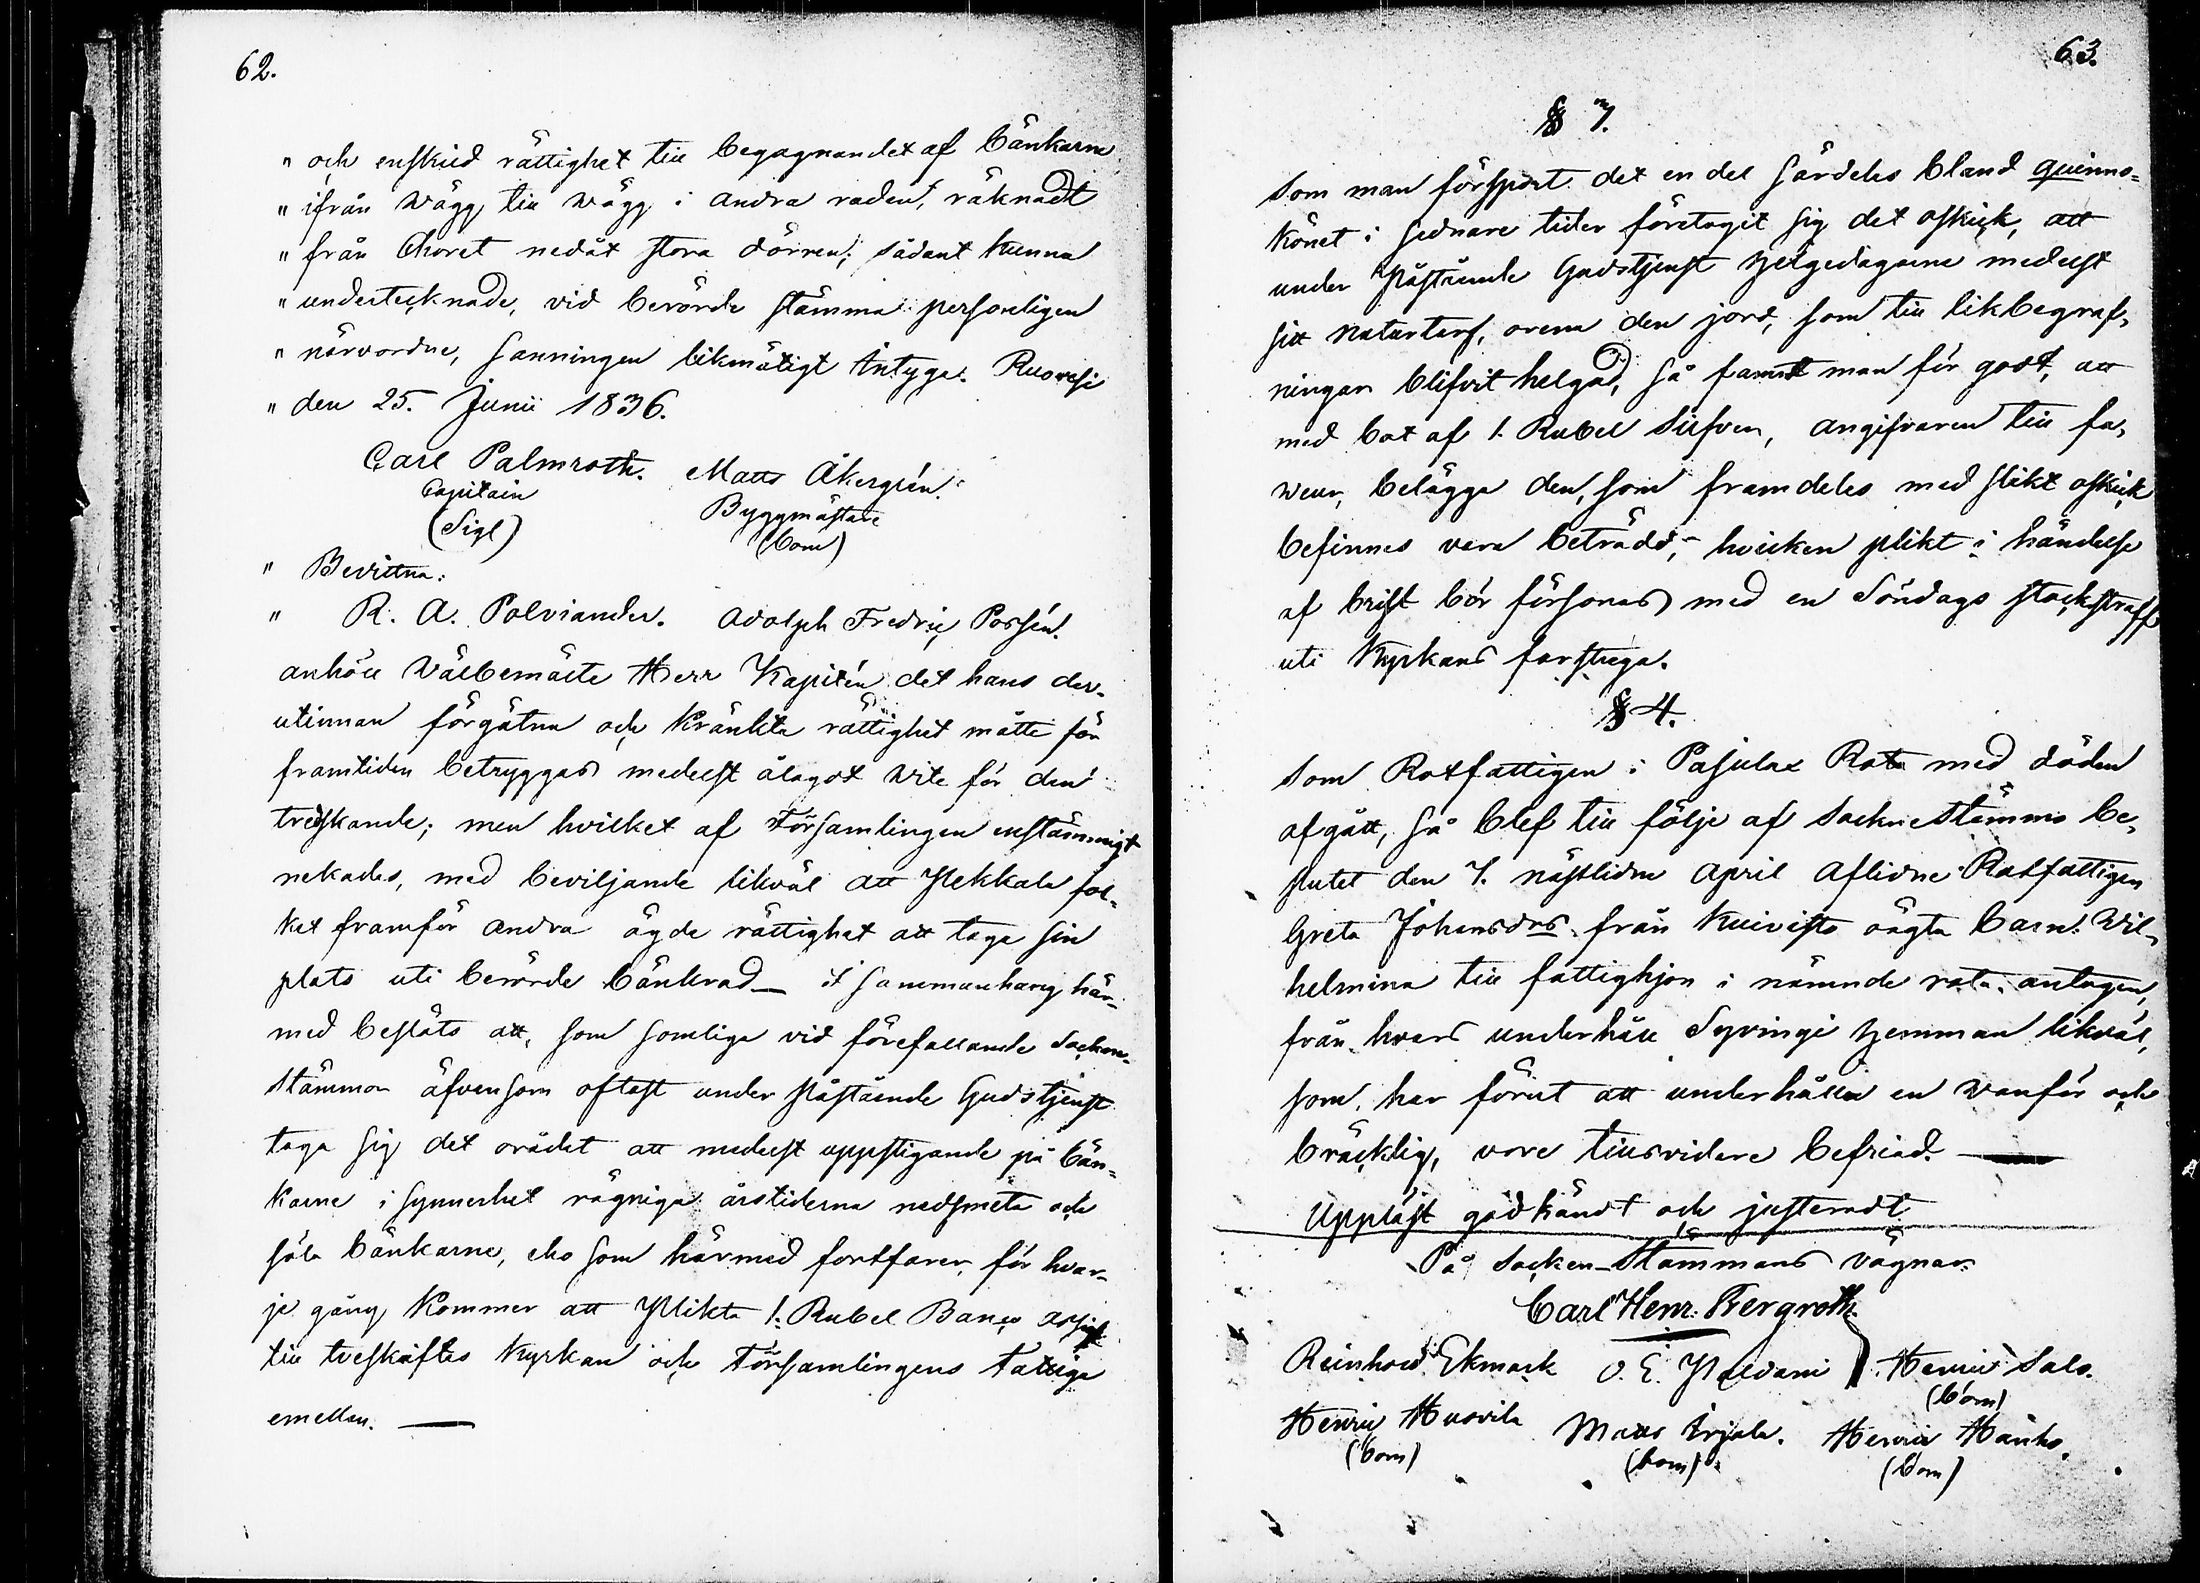 62.
" och enskild rättighet till begagnandet af bänkarne
" ifrån wägg till wägg i andra raden, räknadt
" från Choret nedåt stora dörren; sådant kunna
" undertecknade, vid berörde stämma personligen
" närvordne, sanningen likmätigt intyga. Ruovesi
" den 25. Junii 1836.
Carl Palmroth. Matts Åkergrén.
Capitain Byggmästare
(Sigl) (bom)
" Bevittna:
" R. A. Polviander. Adolph Fredric Possén.
anhöll Välbemälte Herr Kapitén det hans der-
utinnan förgätna och kränkta rättighet måtte för
framtiden betryggas medelst ålagdt wite för den
tredskande; men hvilket af Församlingen enstämmigt
nekades, med beviljande likväl att Pekkala fol-
ket framför andra ägde rättighet att taga sin
plats uti berörde bänkrad — i sammanhang här-
med beslöts att, som somliga vid förefallande Socken-
stämmor äfvensom oftast under påstående Gudstjenst
taga sig det orådet att medelst uppstigande på bän-
karne i synnerhet rägniga årstiderna nedsmeta och
söla bänkarne, eho som härmed fortfarer, för hvar-
je gång kommer att plikta 1. Rubel Banco
till tveskiftes Kyrkan och Församlingens Fattiga
emellan. —
63.
§ 3.
Som man försport det en del särdeles bland quinno-
könet i sednare tider företagit sig det oskick, att
under påstående Gudstjenst helgedagarne medelst
sitt naturtarf, orena den jord, som till likbegraf-
ningar blifvit helgad, så fannt man för godt, att
med bot af 1. Rubel Silfver, angifvaren till fa-
weur, belägga den, som framdeles med slikt oskick
befinnes vara beträdd, - hvilken plikt i händelse
af brist bör försonas med en Söndags stockstraff
uti Kyrkans farstuga.
§ 4.
Som Rotfattigen i Pajulax Rota med döden
afgått, så blef till följe af Sockne Stämmo be-
slutet den 7. nästlidne April Aflidne Rotfattigen
Greta Johansdrs från Kuivisto oägta barn. Wil-
helmina till fattighjon i nämnde rota antagen,
från hvars underhåll Syvingi hemman likväl,
som har förut att underhålla en vanför och
bräcklig, vore tillsvidare befriad. —
Uppläst godkändt och justeradt
På Socken-Stämmans vägnar
Carl Henr. Bergroth.
Reinhold Ekmark O. E. Henric Salo.
(bom)
Henric Husvila Matts Arjala. Henric Hanho.
(bom) (bom) (bom)